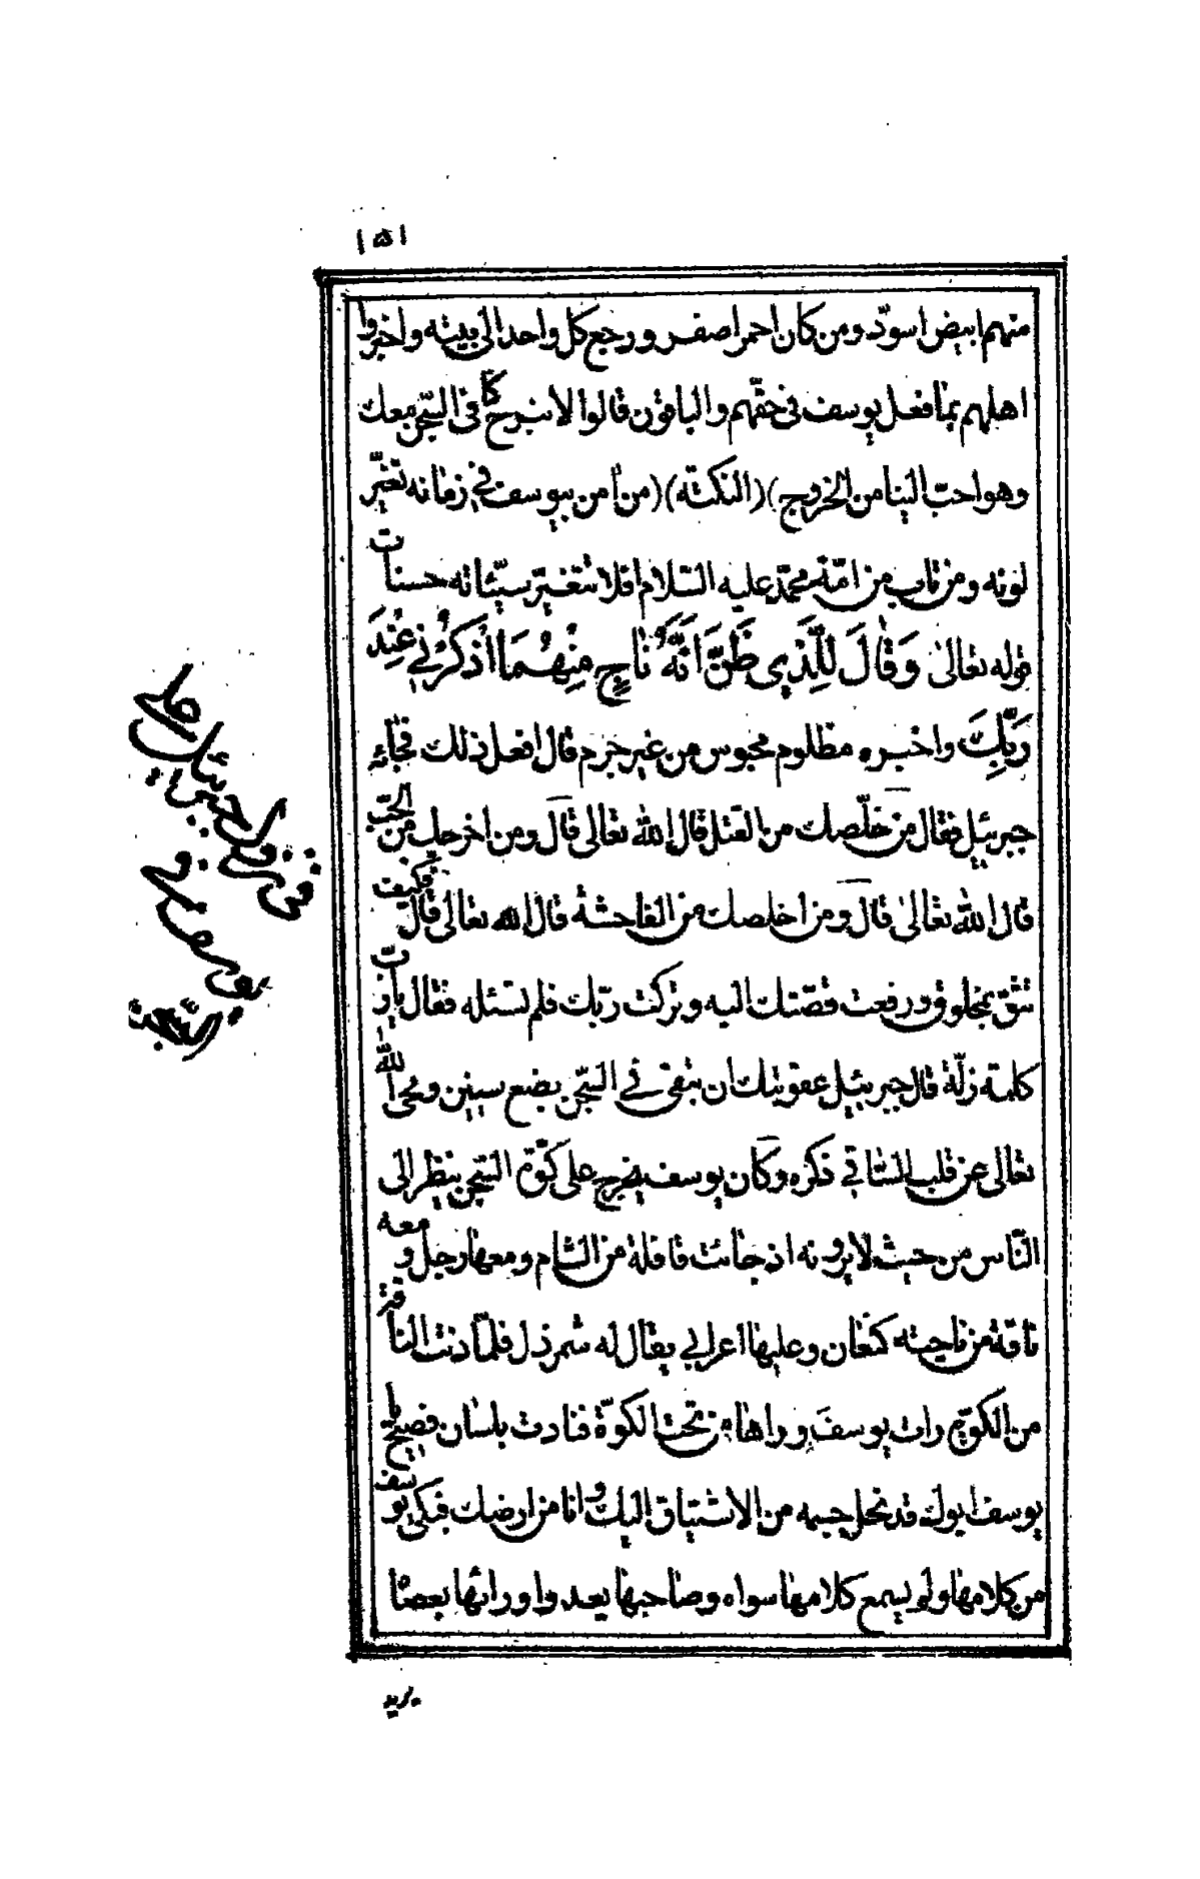 ١٥١
منهم ابيض اسودّ ومن كان احمر اصفر ورجع كل واحد الى بيته واخبروا
اهلهم بما فعل يوسف فى حقّهم والباقون قالوا لا نبرح كنّا فى السّجن معك
وهو احبّ الينا من الخروج) (النكته) (من امن بيوسف فى زمانه تغيّر
لونه ومن تاب من امّة محمّد عليه السّلام افلا تتغيّر سيّئاته حسنات
قوله تعالى وَقَالَ لِلَّذِى ظَنَّ اَنَّهُ نَاجٍ مِنْهُمَا اذْكُرْنِى عِنْدَ
رَبِّكَ واخبره مظلوم محبوس من غير جرم قال افعل ذلك فجائه
جبرئيل فقال من خلّصك من القتل قال الله تعالى قال ومن اخرجك من الجبّ
قال الله تعالى قال ومن اخلصك من الفاحشة قال الله تعالى قال فكيف
تثق بمخلوق ورفعت قصّتك اليه وتركت ربّك فلم تسئله فقال يا ربّ
كلمة زلّة قال جبرئيل عقوبتك ان تبقى فى السّجن بضع سنين ومحى الله
تعالى عن قلب السّاقى ذكره وكان يوسف يخرج على كوّة السّجن ينظر الى
النّاس من حيث لا يرونه اذ جائت قافلة من الشام ومعها رجل ومعه
ناقة من ناحية كنعان وعليها اعرابى يقال له شمرذل فلمّا دنت الناقة
من الكوّة رات يوسف وراها من تحت الكوّة فنادت بلسان فصيح يا
يوسف ابوك قد نحل جسمه من الاشتياق اليك وانا من ارضك فبكى يوسف
من كلامها ولم يسمع كلامها سواه وصاحبها يعدوا ورائها بعصا
فى نزول جبرئيل على
يوسف فى
السّجن
يريد